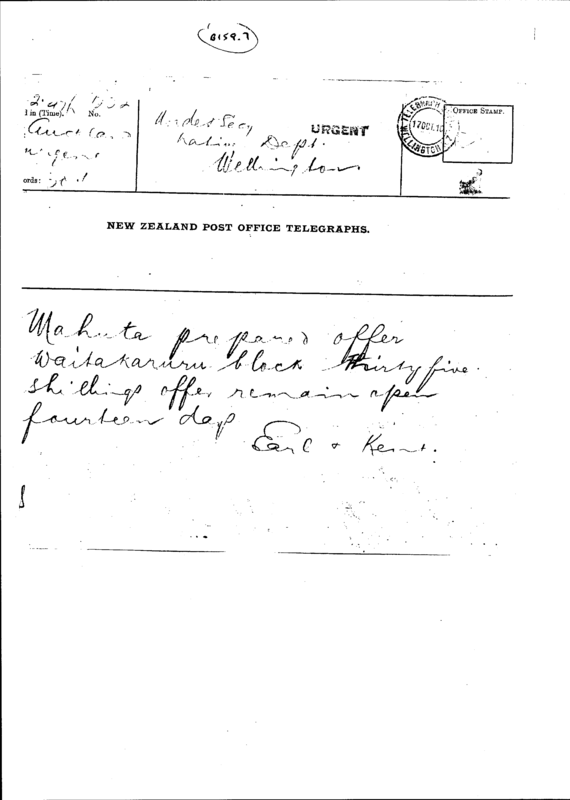 B159.7
in (Time). No.
Auckland
Urgent
ords:
Under Secy
Native Dept.
Wellington
URGENT
TELEGRAPH
17 OC 10
WELLINGTON
OFFICE STAMP.
NEW ZEALAND POST OFFICE TELEGRAPHS.
Mahuta prepared offer
Waitakaruru block thirtyfive
shillings offer remain open
fourteen days
Earl & Kent.